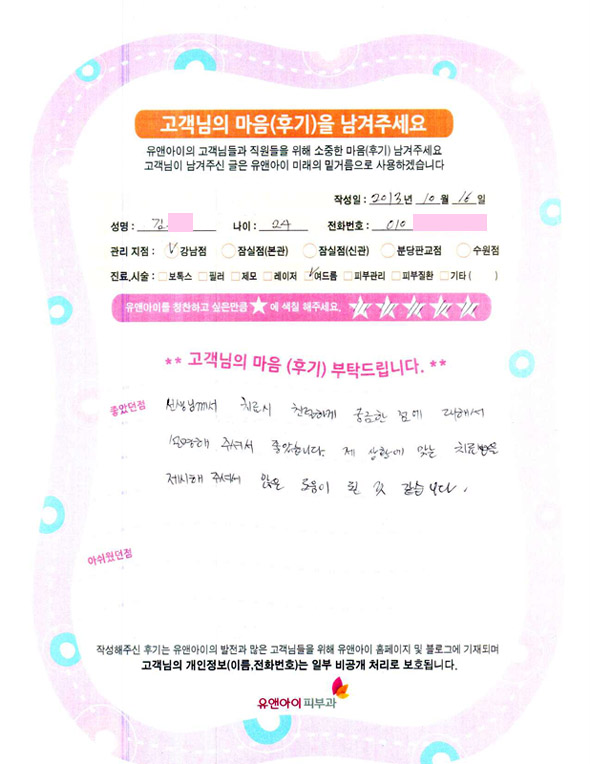 고객님의 마음(후기)을 남겨주세요
유앤아이의 고객님들과 직원들을 위해 소중한 마음(후기) 남겨주세요
고객님이 남겨주신 글은 유앤아이 미래의 밑거름으로 사용하겠습니다
작성일 : 2013년 10월 16일
성명 : 김 나이 : 24 전화번호 : 010
관리 지점 : 강남점 잠실점(본관) 잠실점(신관) 분당판교점 수원점
진료,시술 : 보톡스 필러 제모 레이저 여드름 피부관리 피부질환 기타 ( )
유앤아이를 칭찬하고 싶은만큼 ★에 색칠 해주세요.
** 고객님의 마음 (후기) 부탁드립니다. **
좋았던점 선생님께서 치료시 친절하게 궁금한 점에 대해서
설명해 주셔서 좋았습니다. 제 상황에 맞는 치료법을
제시해 주셔서 많은 도움이 된 것 같습니다.
아쉬웠던점
작성해주신 후기는 유앤아이의 발전과 많은 고객님들을 위해 유앤아이 홈페이지 및 블로그에 기재되며
고객님의 개인정보(이름,전화번호)는 일부 비공개 처리로 보호됩니다.
유앤아이피부과